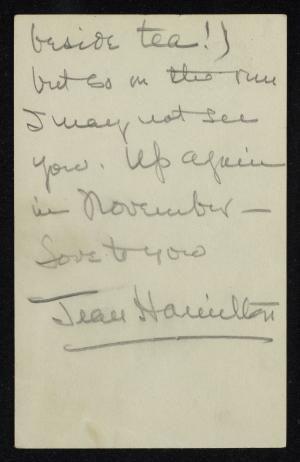 beside tea!)
but so on the run
I may not see
you. Up again
in November —
Love to you
Jean Hamilton